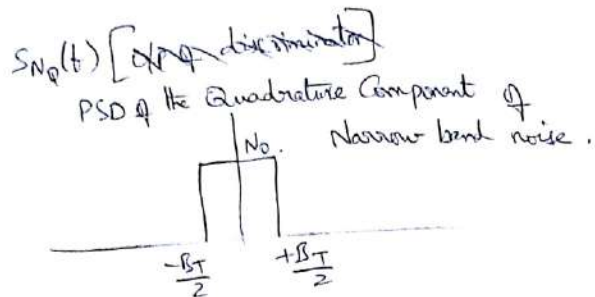 S_{N_Q}(f) [O/P of discriminator]
PSD of the Quadrature Component of
Narrow band noise.
N_0.
-B_T/2 +B_T/2